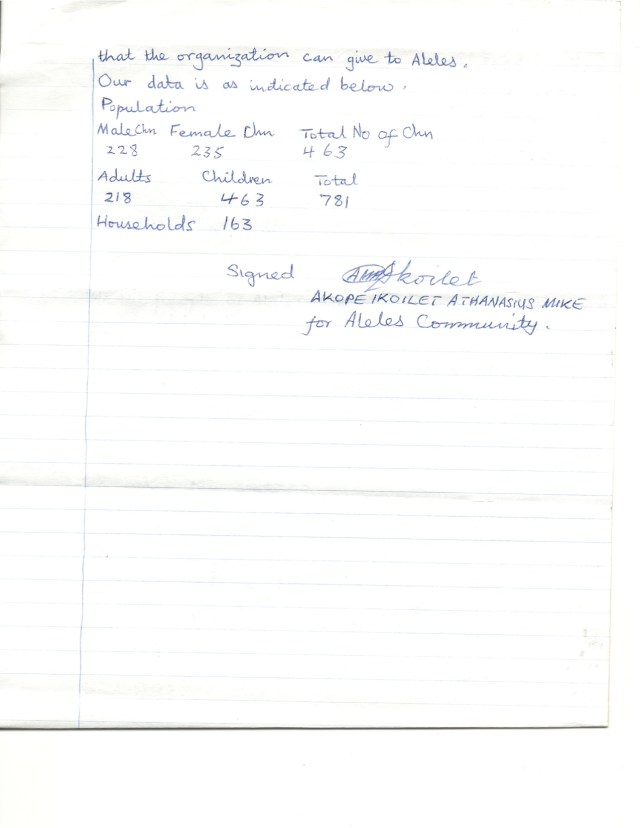 that the organization can give to Aleles.
Our data is as indicated below.
Population
Male Chn Female Chn Total No of Chn
228 235 463
Adults Children Total
218 463 781
Households 163
Signed Ikoilet
AKOPE IKOILET ATHANASIUS MIKE
for Aleles Community.